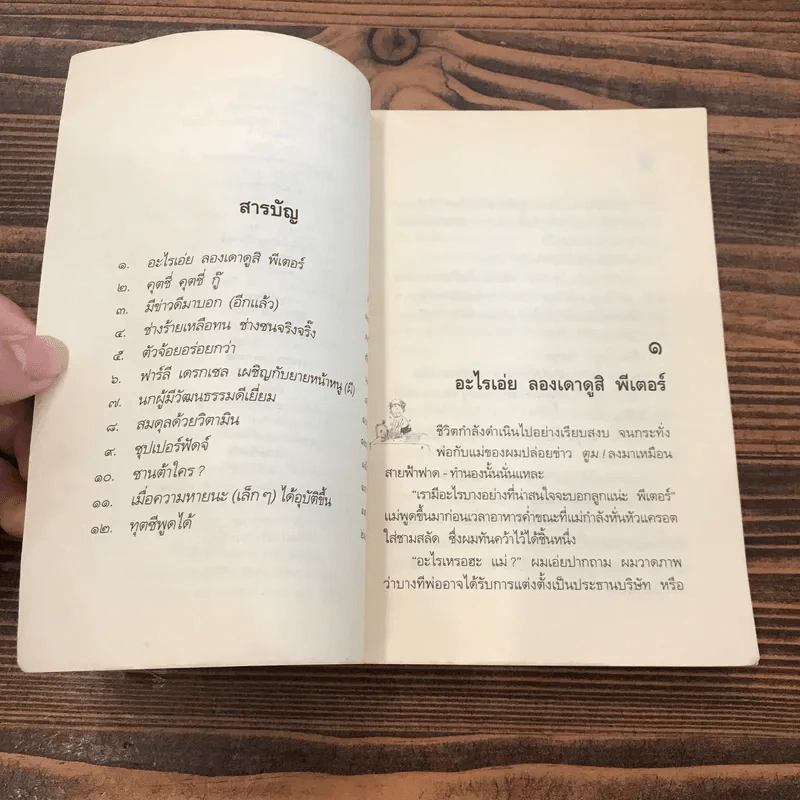 สารบัญ
๑. อะไรเอ่ย ลองเดาดูสิ พีเตอร์
๒. คุตชี่ คุตชี่ กู๊
๓. มีข่าวดีมาบอก (อีกแล้ว)
๔. ช่างร้ายเหลือทน ช่างซนจริงจริ๊ง
๕. ตัวจ้อยอร่อยกว่า
๖. ฟาร์ลี เดรกเซล เผชิญกับยายหน้าหนู (ผี)
๗. นกผู้มีวัฒนธรรมดีเยี่ยม
๘. สมดุลด้วยวิตามิน
๙. ซุปเปอร์ฟัดจ์
๑๐. ซานต้าใคร ?
๑๑. เมื่อความหายนะ (เล็ก ๆ) ได้อุบัติขึ้น
๑๒. ทุตซีพูดได้
๑
อะไรเอ่ย ลองเดาดูสิ พีเตอร์
ชีวิตกำลังดำเนินไปอย่างเรียบสงบ จนกระทั่ง
พ่อกับแม่ของผมปล่อยข่าว ตูม ! ลงมาเหมือน
สายฟ้าฟาด - ทำนองนั้นนั่นแหละ
“เรามีอะไรบางอย่างที่น่าสนใจจะบอกลูกแน่ะ พีเตอร์”
แม่พูดขึ้นมาก่อนเวลาอาหารค่ำขณะที่แม่กำลังหั่นหัวแครอต
ใส่ชามสลัด ซึ่งผมทันคว้าไว้ได้ชิ้นหนึ่ง
“อะไรเหรอฮะ แม่ ?” ผมเอ่ยปากถาม ผมวาดภาพ
ว่าบางทีพ่ออาจได้รับการแต่งตั้งเป็นประธานบริษัท หรือ